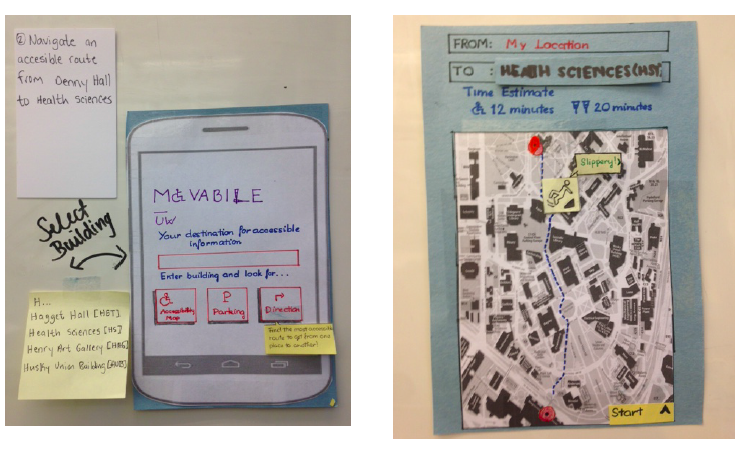 ② Navigate an
accesible route
from Denny Hall
to Health Sciences
Select
Building
H...
Hagget Hall [HET]
Health Sciences [HS]
Henry Art Gallery
Husky Union Building [HUB]
MOVABILE
UW
Your destination for accessible
information
Enter building and look for...
Accessibility
Map
P
Parking
Direction
Find the most accessible
route to get from one
place to another!
FROM: My Location
TO : HEALTH SCIENCES (HST)
Time Estimate
12 minutes 20 minutes
Slippery!
Start